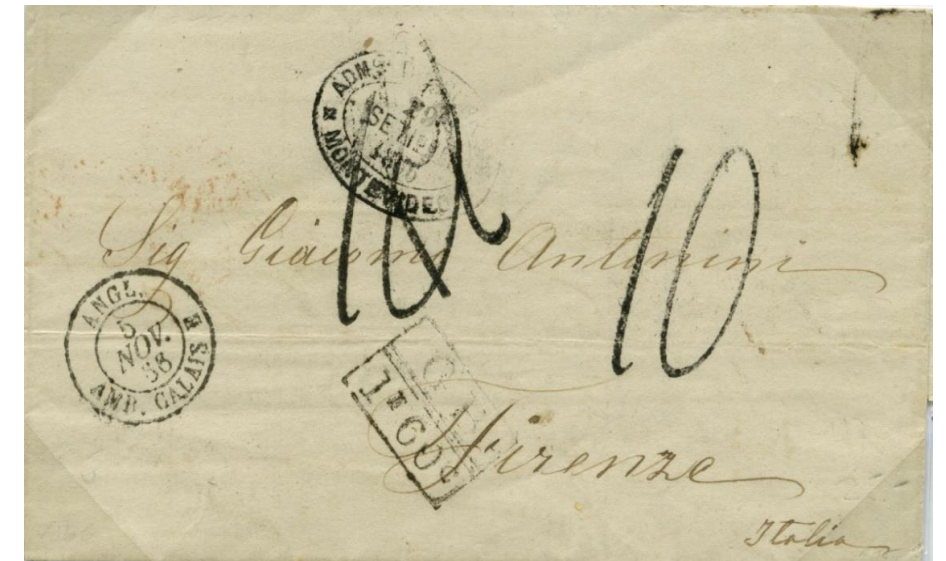 ADMS
SETE
MONTEVIDEO
10
Sig Giacomo Antonini
ANGL.
5
NOV.
AMB. CALAIS
1F60c
Firenze
Italia